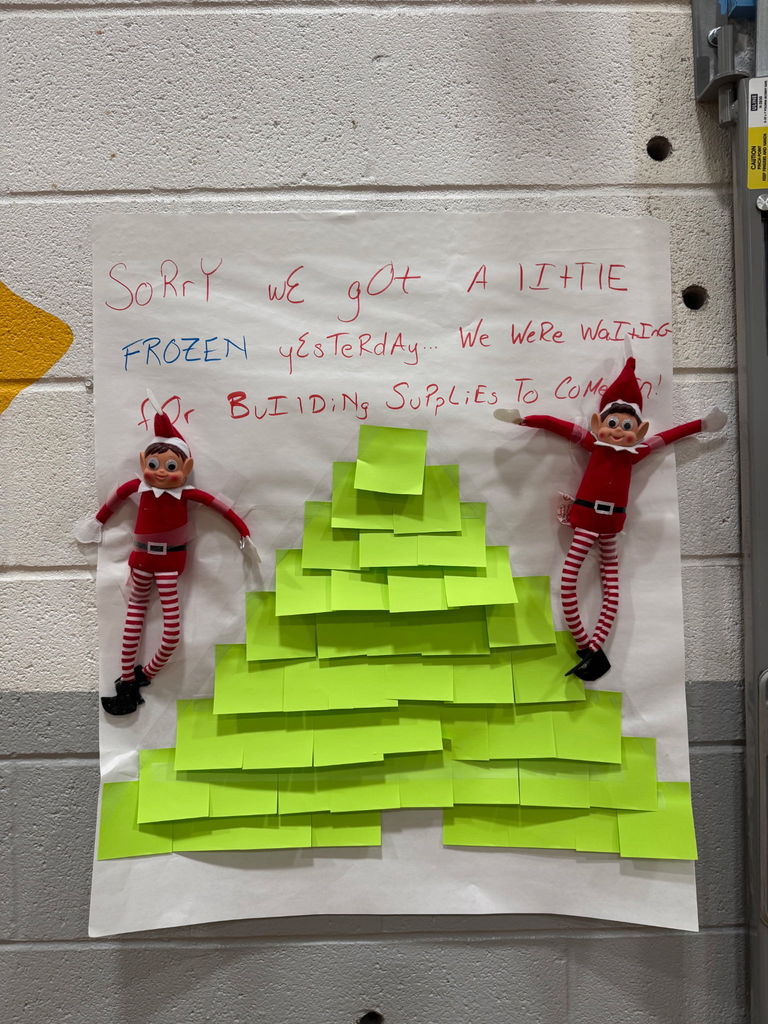 SoRrY wE gOt A lIttlE
FROZEN yEsTeRdAy... We WeRe WaItInG
fOr BuIlDiNg SuPpLiEs To CoMe In!
CAUTION